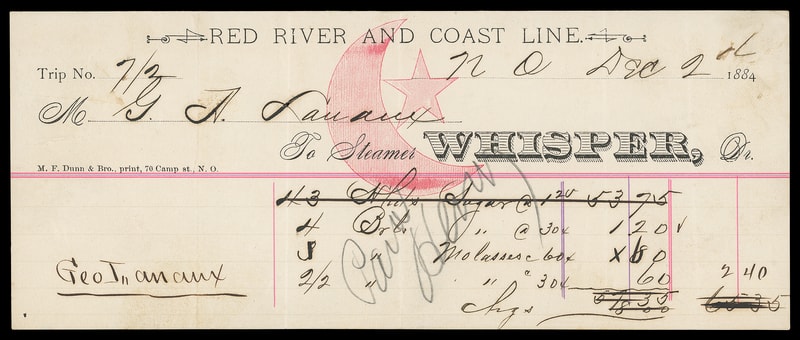 RED RIVER AND COAST LINE.
Trip No. 7/2 N O Dec 2d 1884
M G. A. Lanaux
To Steamer WHISPER, Dr.
M. F. Dunn & Bro., print, 70 Camp st., N. O.
43 Hhds Sugar @ 1 20 53 75
4 Brls " @ 30c 1 20 ✓
" Molasses 60c 60
2/2 " " " 30c 60 2 40
Geo Lanaux
Chgs
Paid